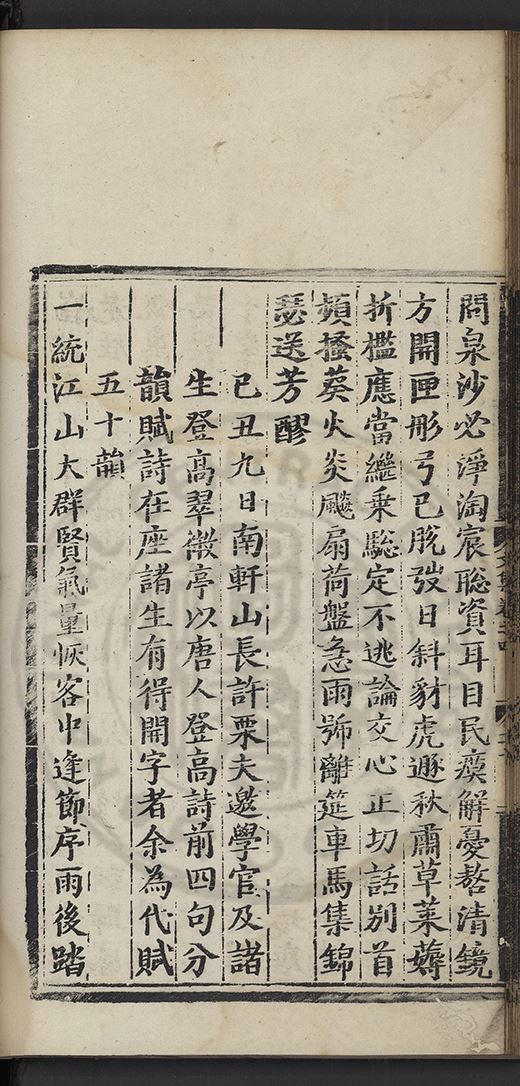 問泉沙必淨淘宸聰資耳目民瘼解憂嗸清鏡
方開匣彤弓已脫弢日斜豺虎遯秋肅草萊薅
折檻應當繼乗驄定不逃論交心正切話別首
頻搔葵火炎飈扇荷盤急雨號離筵車馬集錦
瑟送芳醪
己丑九日南軒山長許栗夫邀學官及諸
生登高翠微亭以唐人登高詩前四句分
韻賦詩在座諸生有得開字者余為代賦
五十韻
一統江山大群賢氣量恢客中逢節序雨後踏